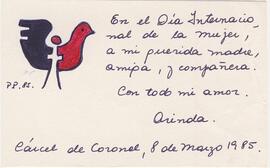 En el Día Internacio_
nal de la mujer,
a mi querida madre,
amiga, y compañera.
P.P. 85.
Con todo mi amor.
Orinda.
Cárcel de Coronel, 8 de Marzo 1985.